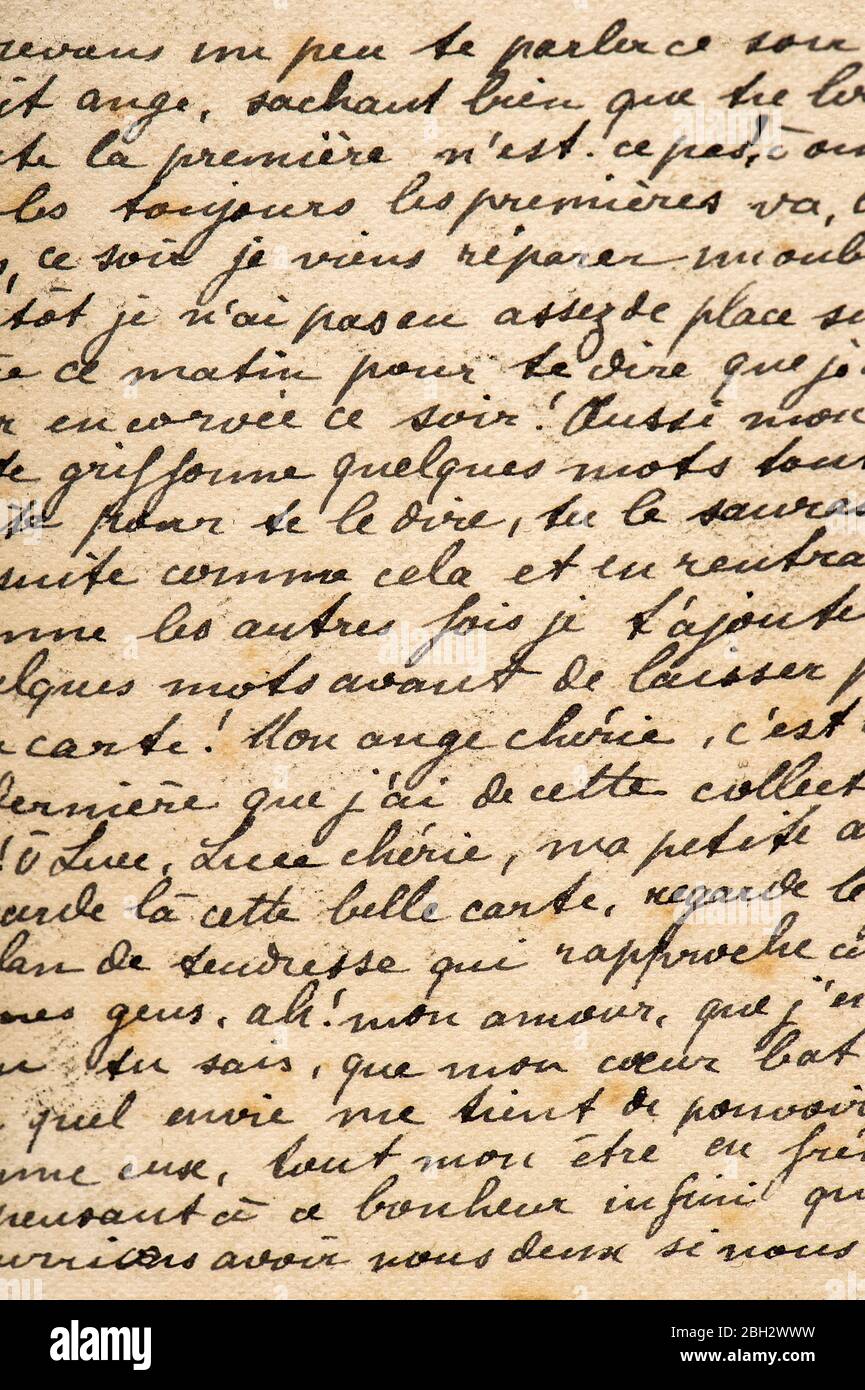 revans un peu te parler ce soir
it ange, sachant bien que tu
te la première n'est-ce pas, ô
les toujours les premières va,
ce soir je viens réparer un oub
tôt je n'ai pas eu assez de place su
ce matin pour te dire que j'
r en corvée ce soir! Aussi mon
te griffonne quelques mots tou
te pour te le dire, tu le sauras
suite comme cela et en rentra
mme les autres fois je t'ajoute
elques mots avant de laisser p
carte! Mon ange chérie, c'est
dernière que j'ai de cette collect
! ô Luce, Luce chérie, ma petite a
arde là cette belle carte, regarde le
lan de tendresse qui rapproche c
nes gens, ah! mon amour, que j'en
tu sais, que mon cœur bat
quel envie me tient de pouvoir
mme eux, tout mon être en fré
pensant à ce bonheur infini qu
urrions avoir nous deux si nous
alamy
Image ID: 2BH2WWW
www.alamy.com